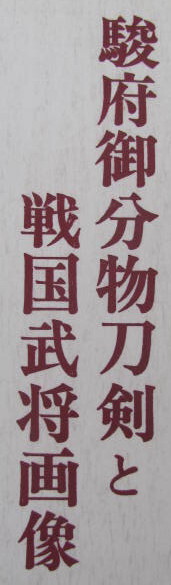 駿府御分物刀剣と
戦国武将画像